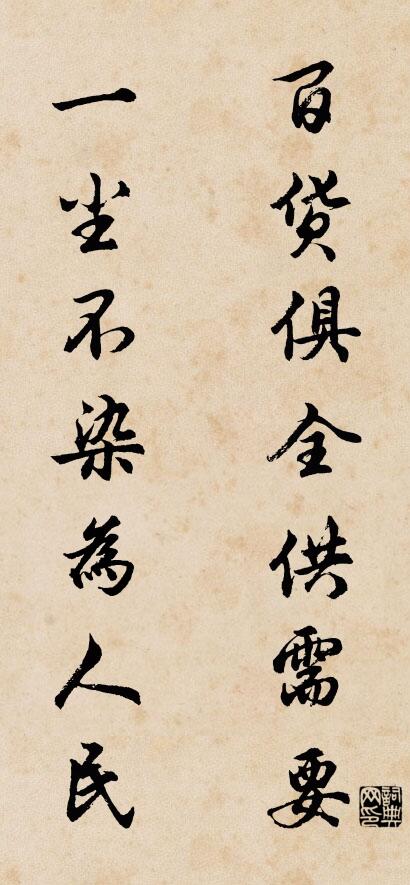 百货俱全供需要
一尘不染為人民
詞典网印